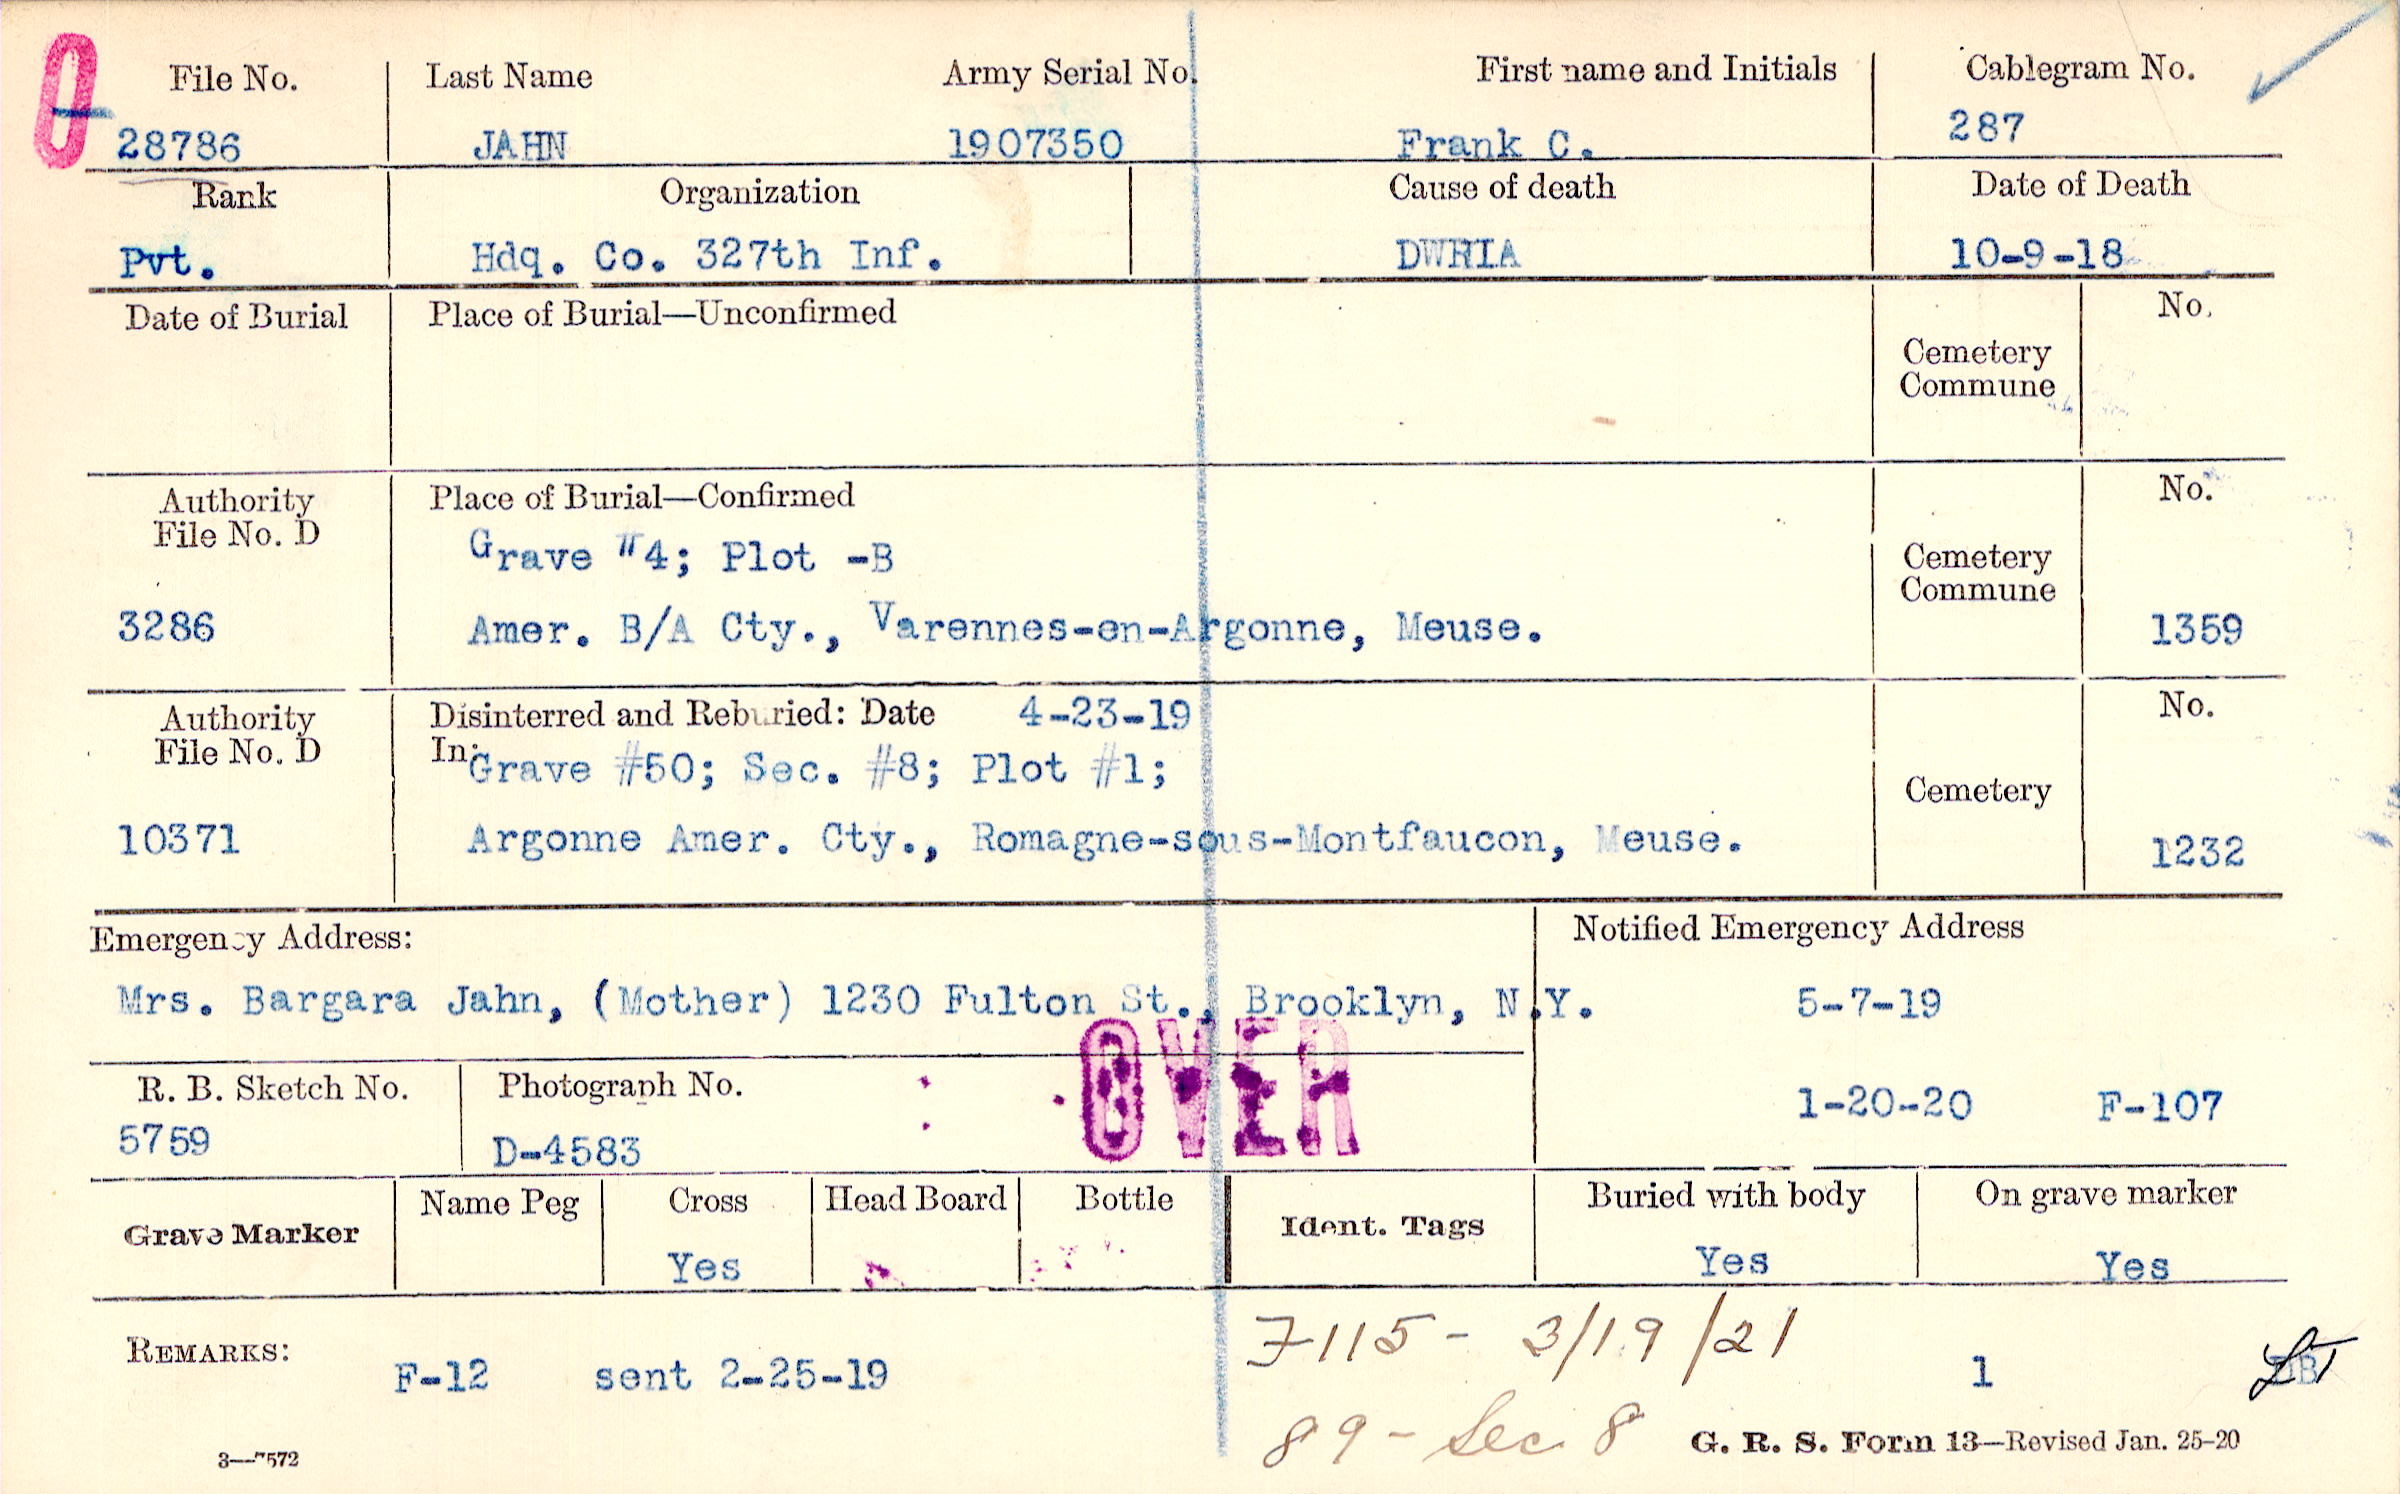 0
File No. Last Name Army Serial No. First name and Initials Cablegram No.
28786 JAHN 1907350 Frank C. 287
Rank Organization Cause of death Date of Death
Pvt. Hdq. Co. 327th Inf. DWRIA 10-9-18
Date of Burial Place of Burial—Unconfirmed No.
Cemetery
Commune
Authority Place of Burial—Confirmed No.
File No. D
Grave #4; Plot -B
Cemetery
Commune
3286 Amer. B/A Cty., Varennes-en-Argonne, Meuse. 1359
Authority Disinterred and Reburied: Date 4-23-19 No.
File No. D In:
Grave #50; Sec. #8; Plot #1;
Cemetery
10371 Argonne Amer. Cty., Romagne-sous-Montfaucon, Meuse. 1232
Emergency Address: Notified Emergency Address
Mrs. Bargara Jahn, (Mother) 1230 Fulton St., Brooklyn, N.Y. 5-7-19
OVER
R. B. Sketch No. Photograph No. 1-20-20 F-107
5759 D-4583
Grave Marker Name Peg Cross Head Board Bottle Ident. Tags Buried with body On grave marker
Yes Yes Yes
REMARKS: F-12 sent 2-25-19 F115- 3/19/21 1
89 - Sec 8
3—7572 G. R. S. Form 13—Revised Jan. 25-20